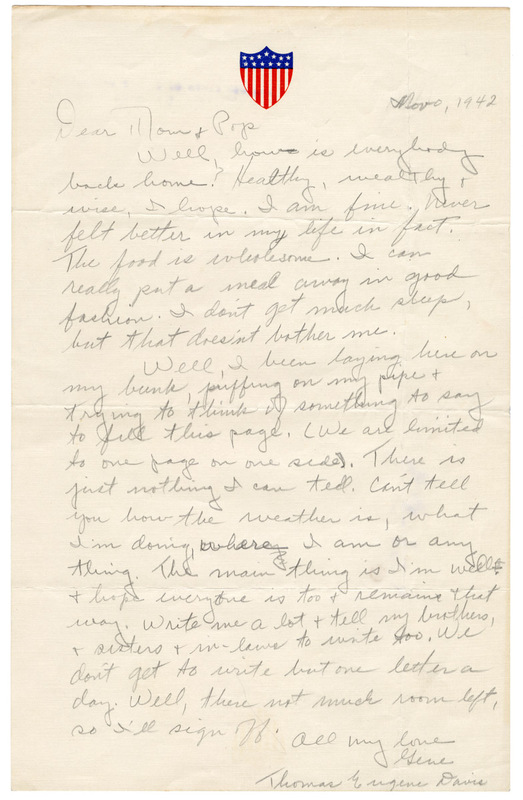 Nov 0, 1942
Dear Mom & Pop
Well, how is everybody
back home? Healthy, wealthy, &
wise, I hope. I am fine. Never
felt better in my life in fact.
The food is wholesome. I can
really put a meal away in good
fashion. I don't get much sleep,
but that doesn't bother me.
Well, I been laying here on
my bunk, puffing on my pipe &
trying to think of something to say
to fill this page. (We are limited
to one page on one side). There is
just nothing I can tell. Can't tell
you how the weather is, what
I'm doing, where I am or any
thing. The main thing is I'm well
& hope everyone is too & remains that
way. Write me a lot & tell my brothers,
& sisters & in-laws to write too. We
don't get to write but one letter a
day. Well, there not much room left,
so I'll sign off.
All my love
Gene
Thomas Eugene Davis